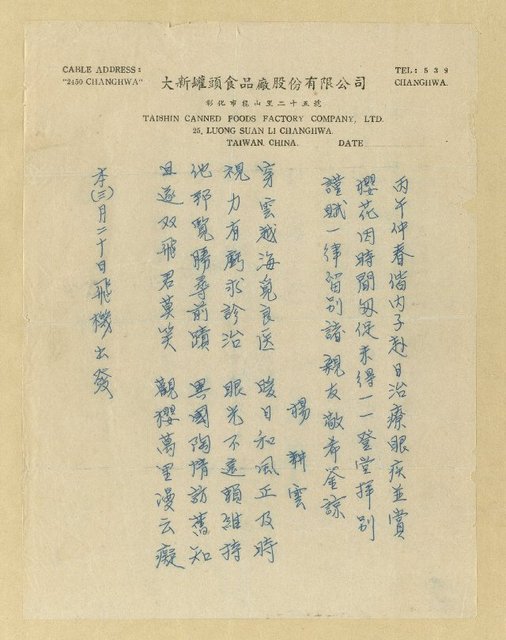 CABLE ADDRESS:
"2450 CHANGHWA"
大新罐頭食品廠股份有限公司
TEL: 539
CHANGHWA.
彰化市龍山里二十五號
TAISHIN CANNED FOODS FACTORY COMPANY, LTD.
25, LUONG SUAN LI CHANGHWA.
TAIWAN, CHINA.
DATE
丙午仲春偕內子赴日治療眼疾並賞
櫻花因時間匆促未得一一登堂拜別
謹賦一律留別諸親友敬希釜諒
楊耕雲
穿雲越海覓良医 暖日和風正及時
視力有虧求診治 眼光不遠賴維持
他邦覽勝尋前蹟 異國陶情訪舊知
且逐双飛君莫笑 觀櫻萬里漫云癡
本(三)月二十日飛機出發